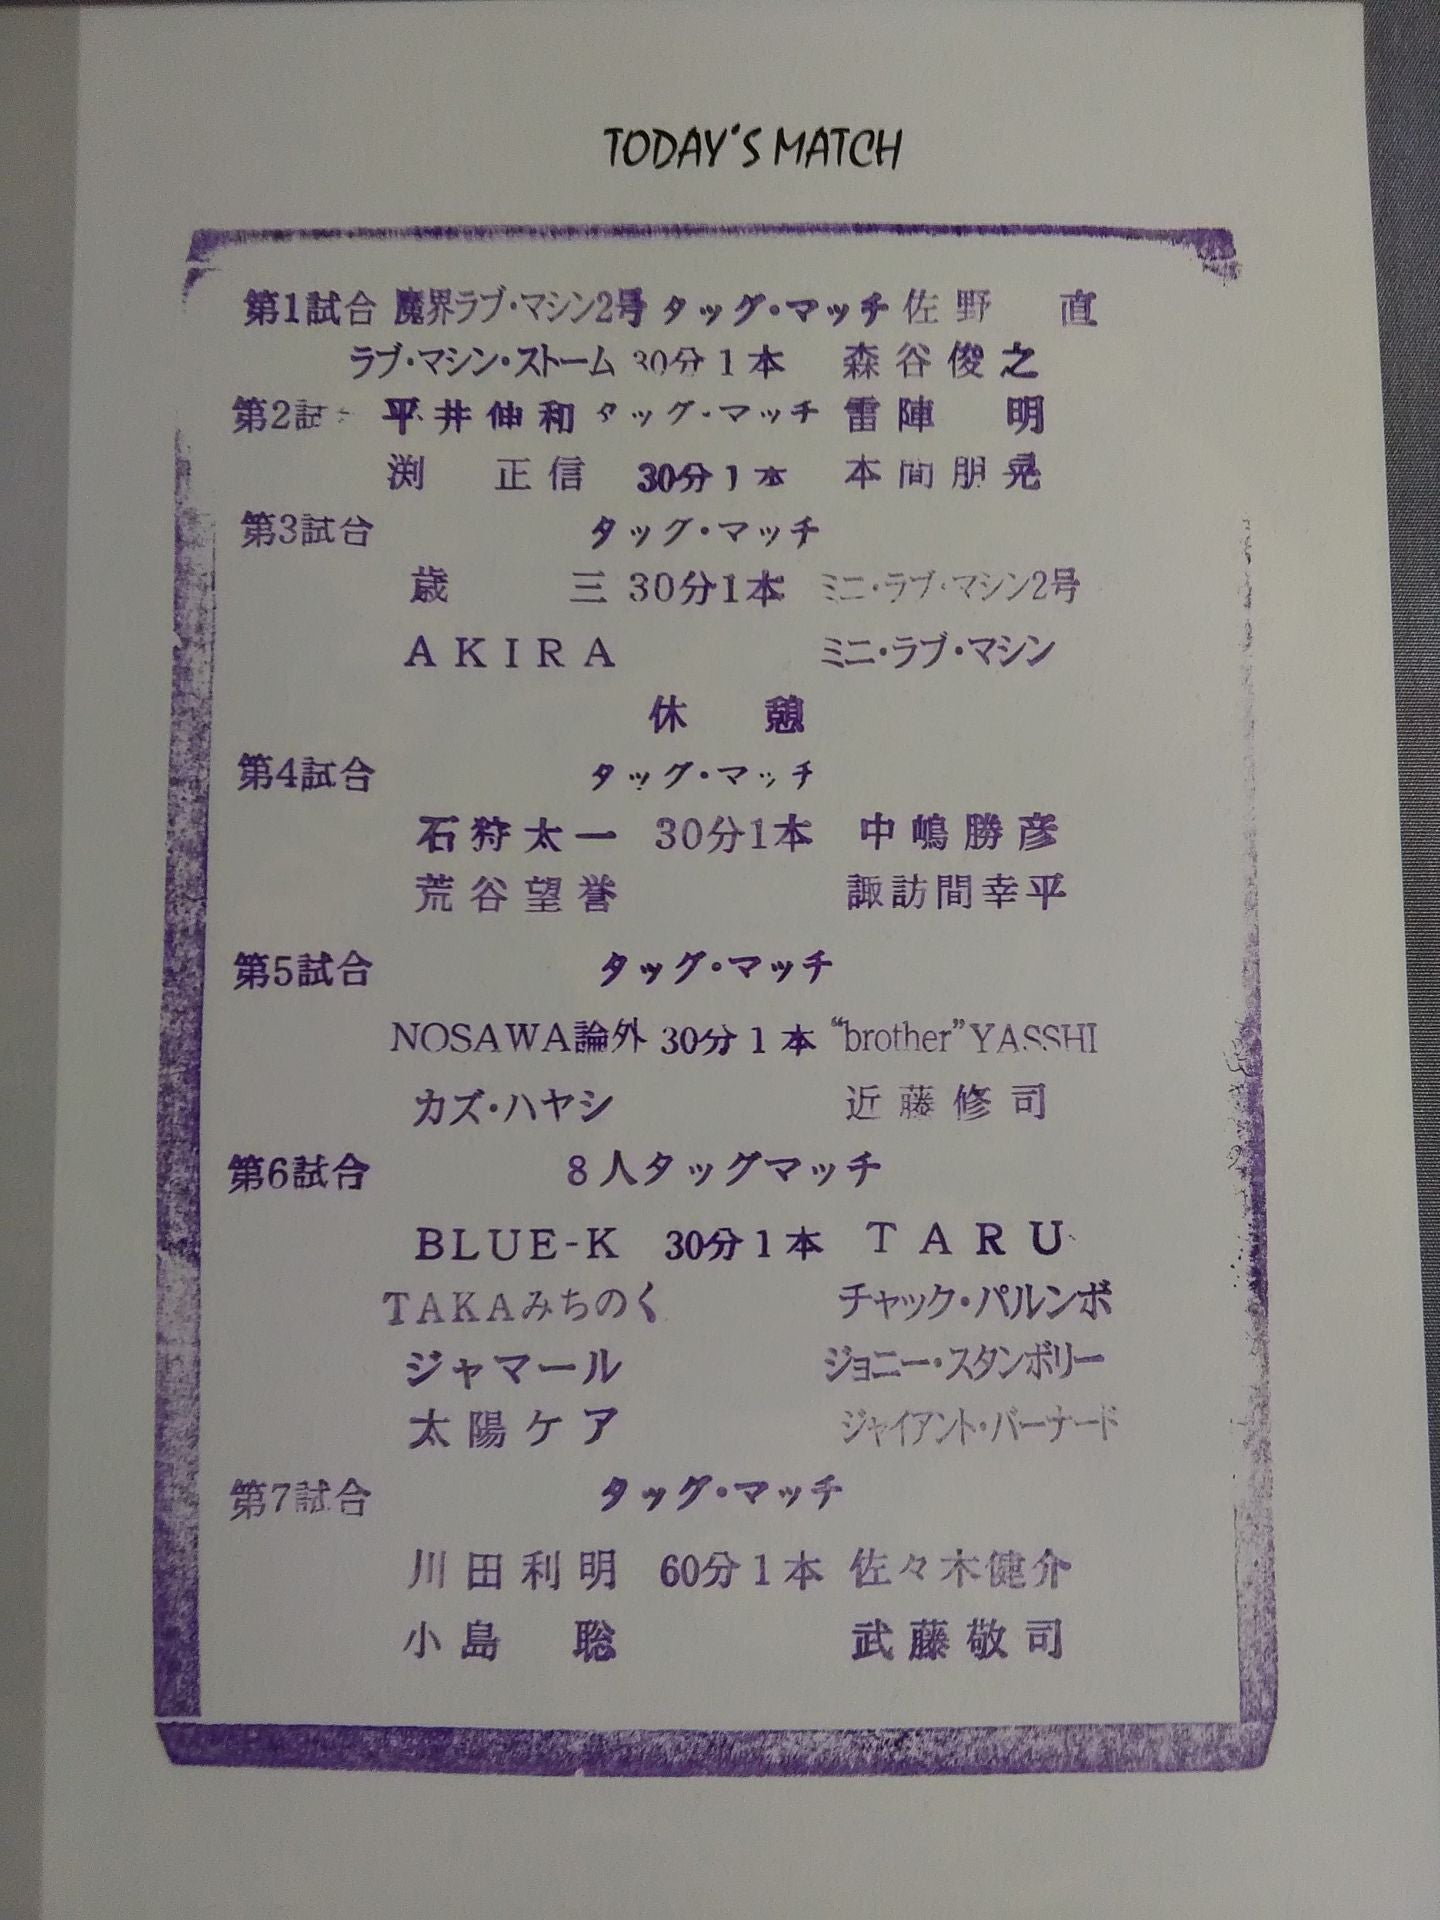 TODAY'S MATCH
第1試合 魔界ラブ・マシン2号 タッグ・マッチ 佐野 直
ラブ・マシン・ストーム 30分1本 森谷俊之
第2試合 平井伸和 タッグ・マッチ 雷陣 明
渕 正信 30分1本 本間朋晃
第3試合 タッグ・マッチ
歳 三 30分1本 ミニ・ラブ・マシン2号
AKIRA ミニ・ラブ・マシン
休 憩
第4試合 タッグ・マッチ
石狩太一 30分1本 中嶋勝彦
荒谷望誉 諏訪間幸平
第5試合 タッグ・マッチ
NOSAWA論外 30分1本 “brother”YASSHI
カズ・ハヤシ 近藤修司
第6試合 8人タッグマッチ
BLUE-K 30分1本 TARU
TAKAみちのく チャック・パルンボ
ジャマール ジョニー・スタンボリー
太陽ケア ジャイアント・バーナード
第7試合 タッグ・マッチ
川田利明 60分1本 佐々木健介
小島 聡 武藤敬司